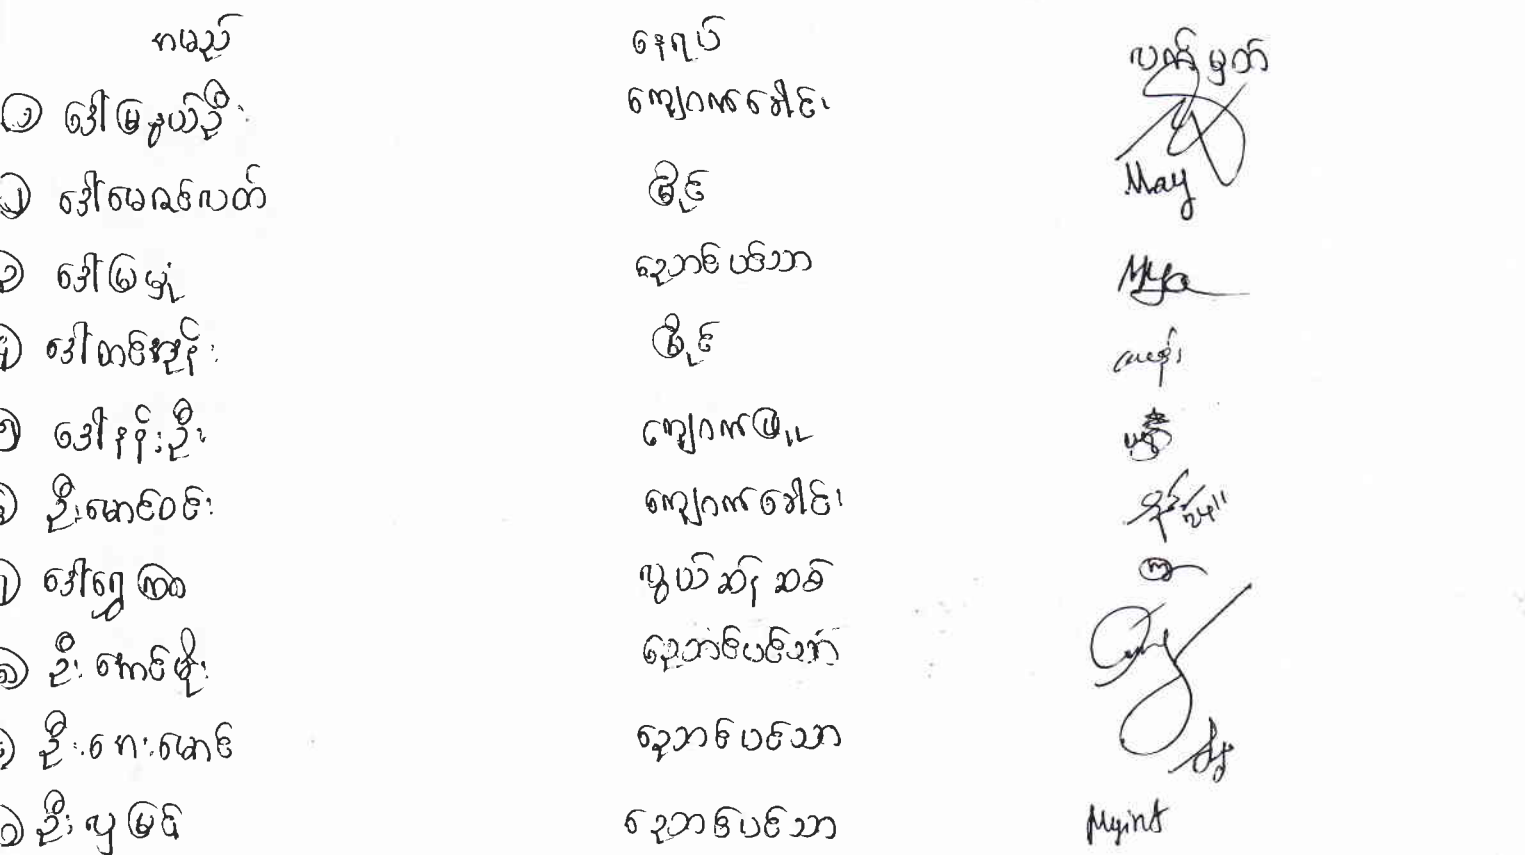 အမည် နေရပ် လက်မှတ်
၁ ဒေါ်မြနွယ်ဦး ကျောက်ခေါင်း
၂ ဒေါ်မေဇင်လတ် မြိုင် May
၃ ဒေါ်မြမှုံ ညောင်ပင်သာ Mya
၄ ဒေါ်တင်အုန်း မြိုင်
၅ ဒေါ်နန်းဦး ကျောက်ဖြူ
၆ ဦးမောင်ဝင်း ကျောက်ခေါင်း
၇ ဒေါ်ရွှေကြာ လွယ်ဆန်ဆစ်
၈ ဦးအောင်မိုး ညောင်ပင်သာ
၉ ဦးအေးမောင် ညောင်ပင်သာ
၁၀ ဦးလှမြင့် ညောင်ပင်သာ Myint